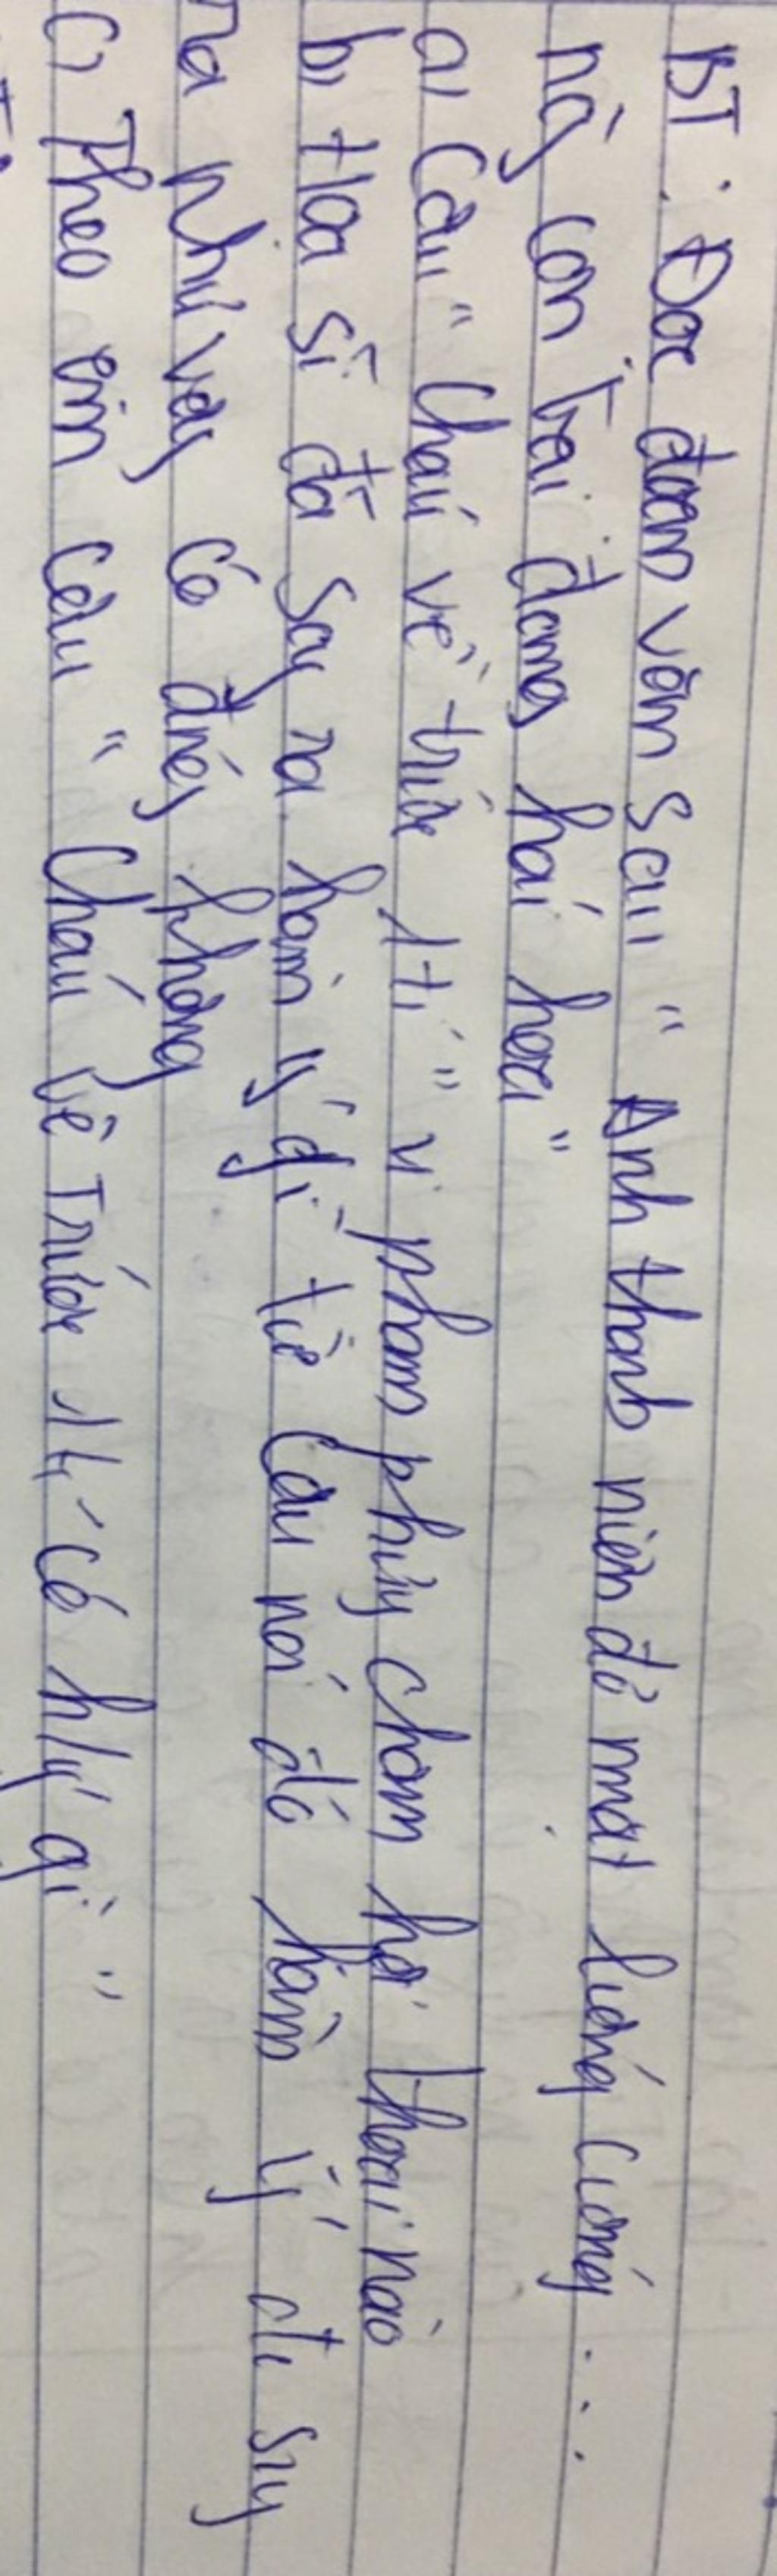 BT : Đọc đoạn văn sau " Anh thanh niên đỏ mặt luống cuống ...
này con trai đang hái hoa "
a, Câu " Cháu về trước 1 tí " vi phạm phương châm hội thoại nào
b, Họa sĩ đã suy ra hàm ý gì từ câu nói đó hàm ý đc suy
ra như vậy có đúng không
C, Theo em câu " Cháu về trước 1 tí có hlý gì "